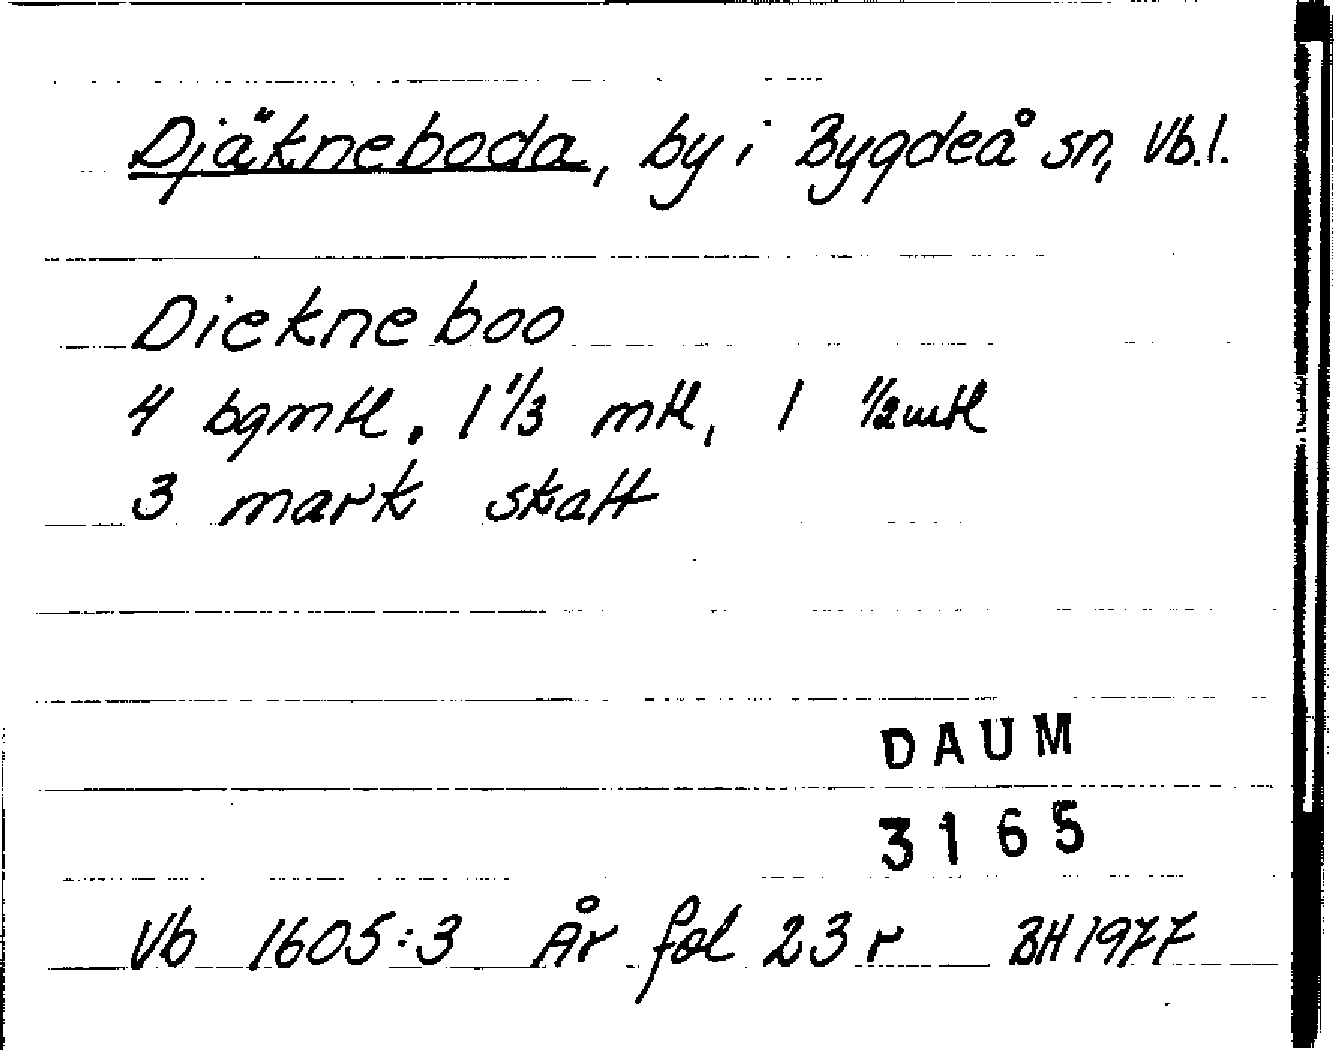 Djäkneboda, by i Bygdeå sn, Vb.l.
Diekneboo
4 bgmtl, 1 1/3 mtl, 1 1/2 mtl
3 mark skatt
DAUM
3165
Vb 1605:3 År fol 23 r BH 1977